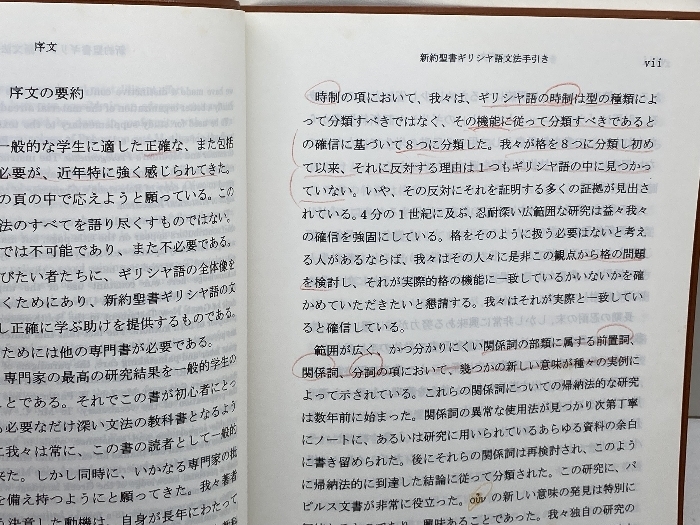 序文
序文の要約
一般的な学生に適した正確な、また包括
必要が、近年特に強く感じられてきた。
の頁の中で応えようと願っている。この
法のすべてを語り尽くすものではない。
では不可能であり、また不必要である。
びたい者たちに、ギリシヤ語の全体像を
くためにあり、新約聖書ギリシヤ語の文
し正確に学ぶ助けを提供するものである。
ためには他の専門書が必要である。
専門家の最高の研究結果を一般的学生の
ことである。それでこの書が初心者にとっ
も必要なだけ深い文法の教科書となるよう
に我々は常に、この書の読者として一般的
来た。しかし同時に、いかなる専門家の批
を備え持つようにと願ってきた。我々著者
う決意した動機は、自身が長年にわたって
新約聖書ギリシヤ語文法手引き
vii
時制の項において、我々は、ギリシヤ語の時制は型の種類によ
って分類すべきではなく、その機能に従って分類すべきであると
の確信に基づいて８つに分類した。我々が格を８つに分類し初め
て以来、それに反対する理由は１つもギリシヤ語の中に見つかっ
ていない。いや、その反対にそれを証明する多くの証拠が見出さ
れている。４分の１世紀に及ぶ、忍耐深い広範囲な研究は益々我々
の確信を強固にしている。格をそのように扱う必要はないと考え
る人があるならば、我々はその人々に是非この観点から格の問題
を検討し、それが実際的格の機能に一致しているかいないかを確
かめていただきたいと懇請する。我々はそれが実際と一致してい
ると確信している。
範囲が広く、かつ分かりにくい関係詞の部類に属する前置詞、
関係詞、分詞の項において、幾つかの新しい意味が種々の実例に
よって示されている。これらの関係詞についての帰納法的な研究
は数年前に始まった。関係詞の異常な使用法が見つかり次第丁寧
にノートに、あるいは研究に用いられているあらゆる資料の余白
に書き留められた。後にそれらの関係詞は再検討され、このよう
に帰納法的に到達した結論に従って分類された。この研究に、パ
ピルス文書が非常に役立った。οὖν の新しい意味の発見は特別に